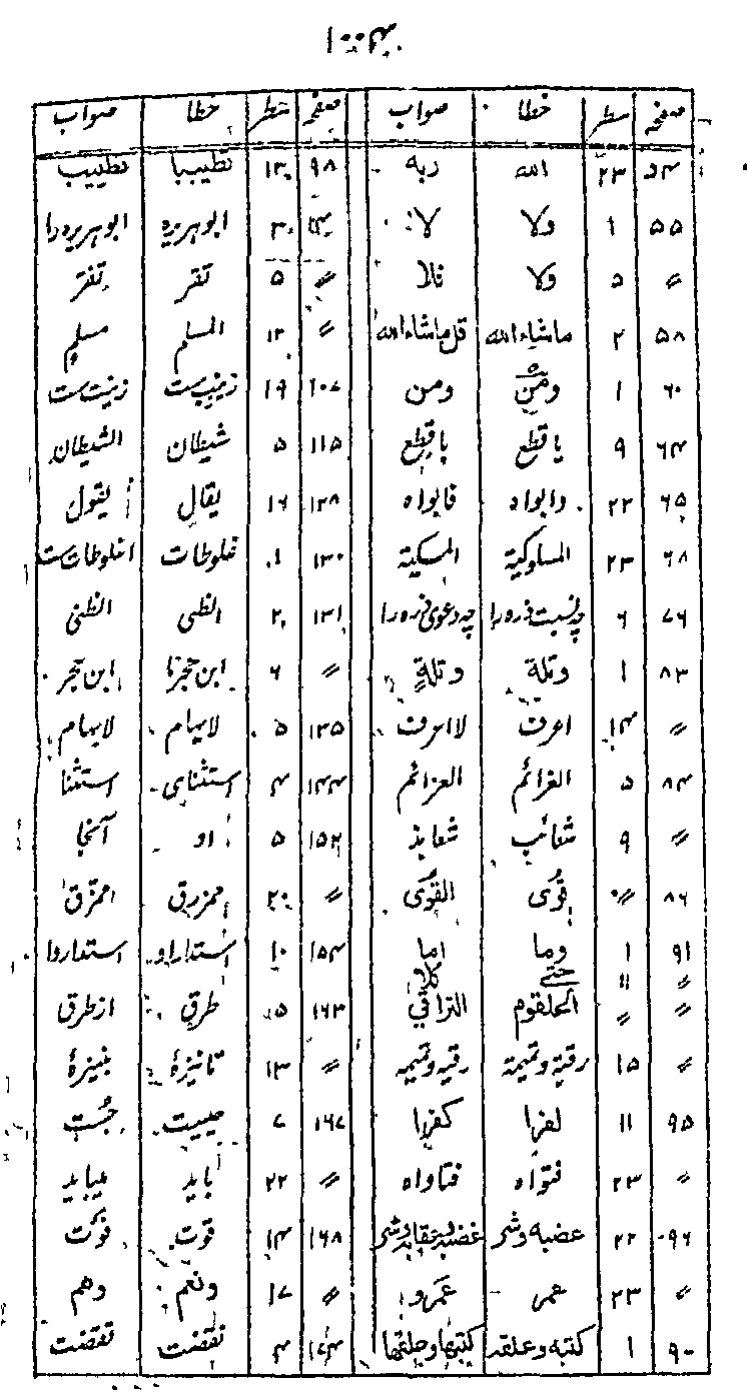 صفحه سطر خطا صواب صفحه سطر خطا صواب
۵۴ ۲۳ الله ربه ۹۸ ۱۳ تطیبا تطییب
۵۵ ۱ ولا لا ۳ ابو ہریرہ ابو ہریرہ را
〃 ۵ ولا فلا 〃 ۵ تقر تفر
۵۸ ۲ ماشاءالله قل ماشاءالله 〃 ۱۲ المسلم مسلم
۶۰ ۱ ومن ومن ۱۰۷ ۱۹ زینب ست زینت ست
۶۴ ۹ یا قطع باقطع ۱۱۵ ۵ شیطان الشیطان
۶۵ ۲۲ دابواه فابواه ۱۲۸ ۱۶ یقال یقول
۶۸ ۲۳ المساوکیة المسکیة ۱۳۰ ۱ غلوطات اغلوطات ست
۷۶ ۶ چه نسبت ذره را چه دعوی ذره را ۱۳۱ ۲ الظی الظنی
۸۳ ۱ وتلة وتلةٍ 〃 ۶ ابن حجرنا ابن حجر
〃 ۱۴ اعرف لااعرف ۱۳۵ ۵ لایهام لایهام
۸۴ ۵ الغرائم العزائم ۱۴۴ ۴ استثنای استثنا
〃 ۹ شعائب شعابذ ۱۵۲ ۵ او آنجا
۸۶ 〃 قوی القوی 〃 ۲۰ ممزرق ممزق
۹۱ ۱ وما اما ۱۵۴ ۱۰ استداراو استداروا
〃 11 حتی کلا
〃 〃 الحلقوم التراقی ۱۶۳ ۵ طرق ازطرق
〃 ۱۵ رقیة وتمیمة رقیه وتمیمه 〃 ۱۳ تانیزهٔ بنیزهٔ
۹۵ ۱۱ لفرا کفرا ۱۶۷ ۷ جست
〃 ۲۳ فتواه فتاواه 〃 ۲۲ باید میباید
۹۶ ۲۲ عضبه وشر غضبه وعقابه وشر ۱۶۸ ۱۴ قوت فوت
〃 ۲۳ عمر عمرو 〃 ۱۷ ونعم وهم
۹۰ ۱ کتبه وعلقه کتبها وعلقها ۴ نقضت تقضت